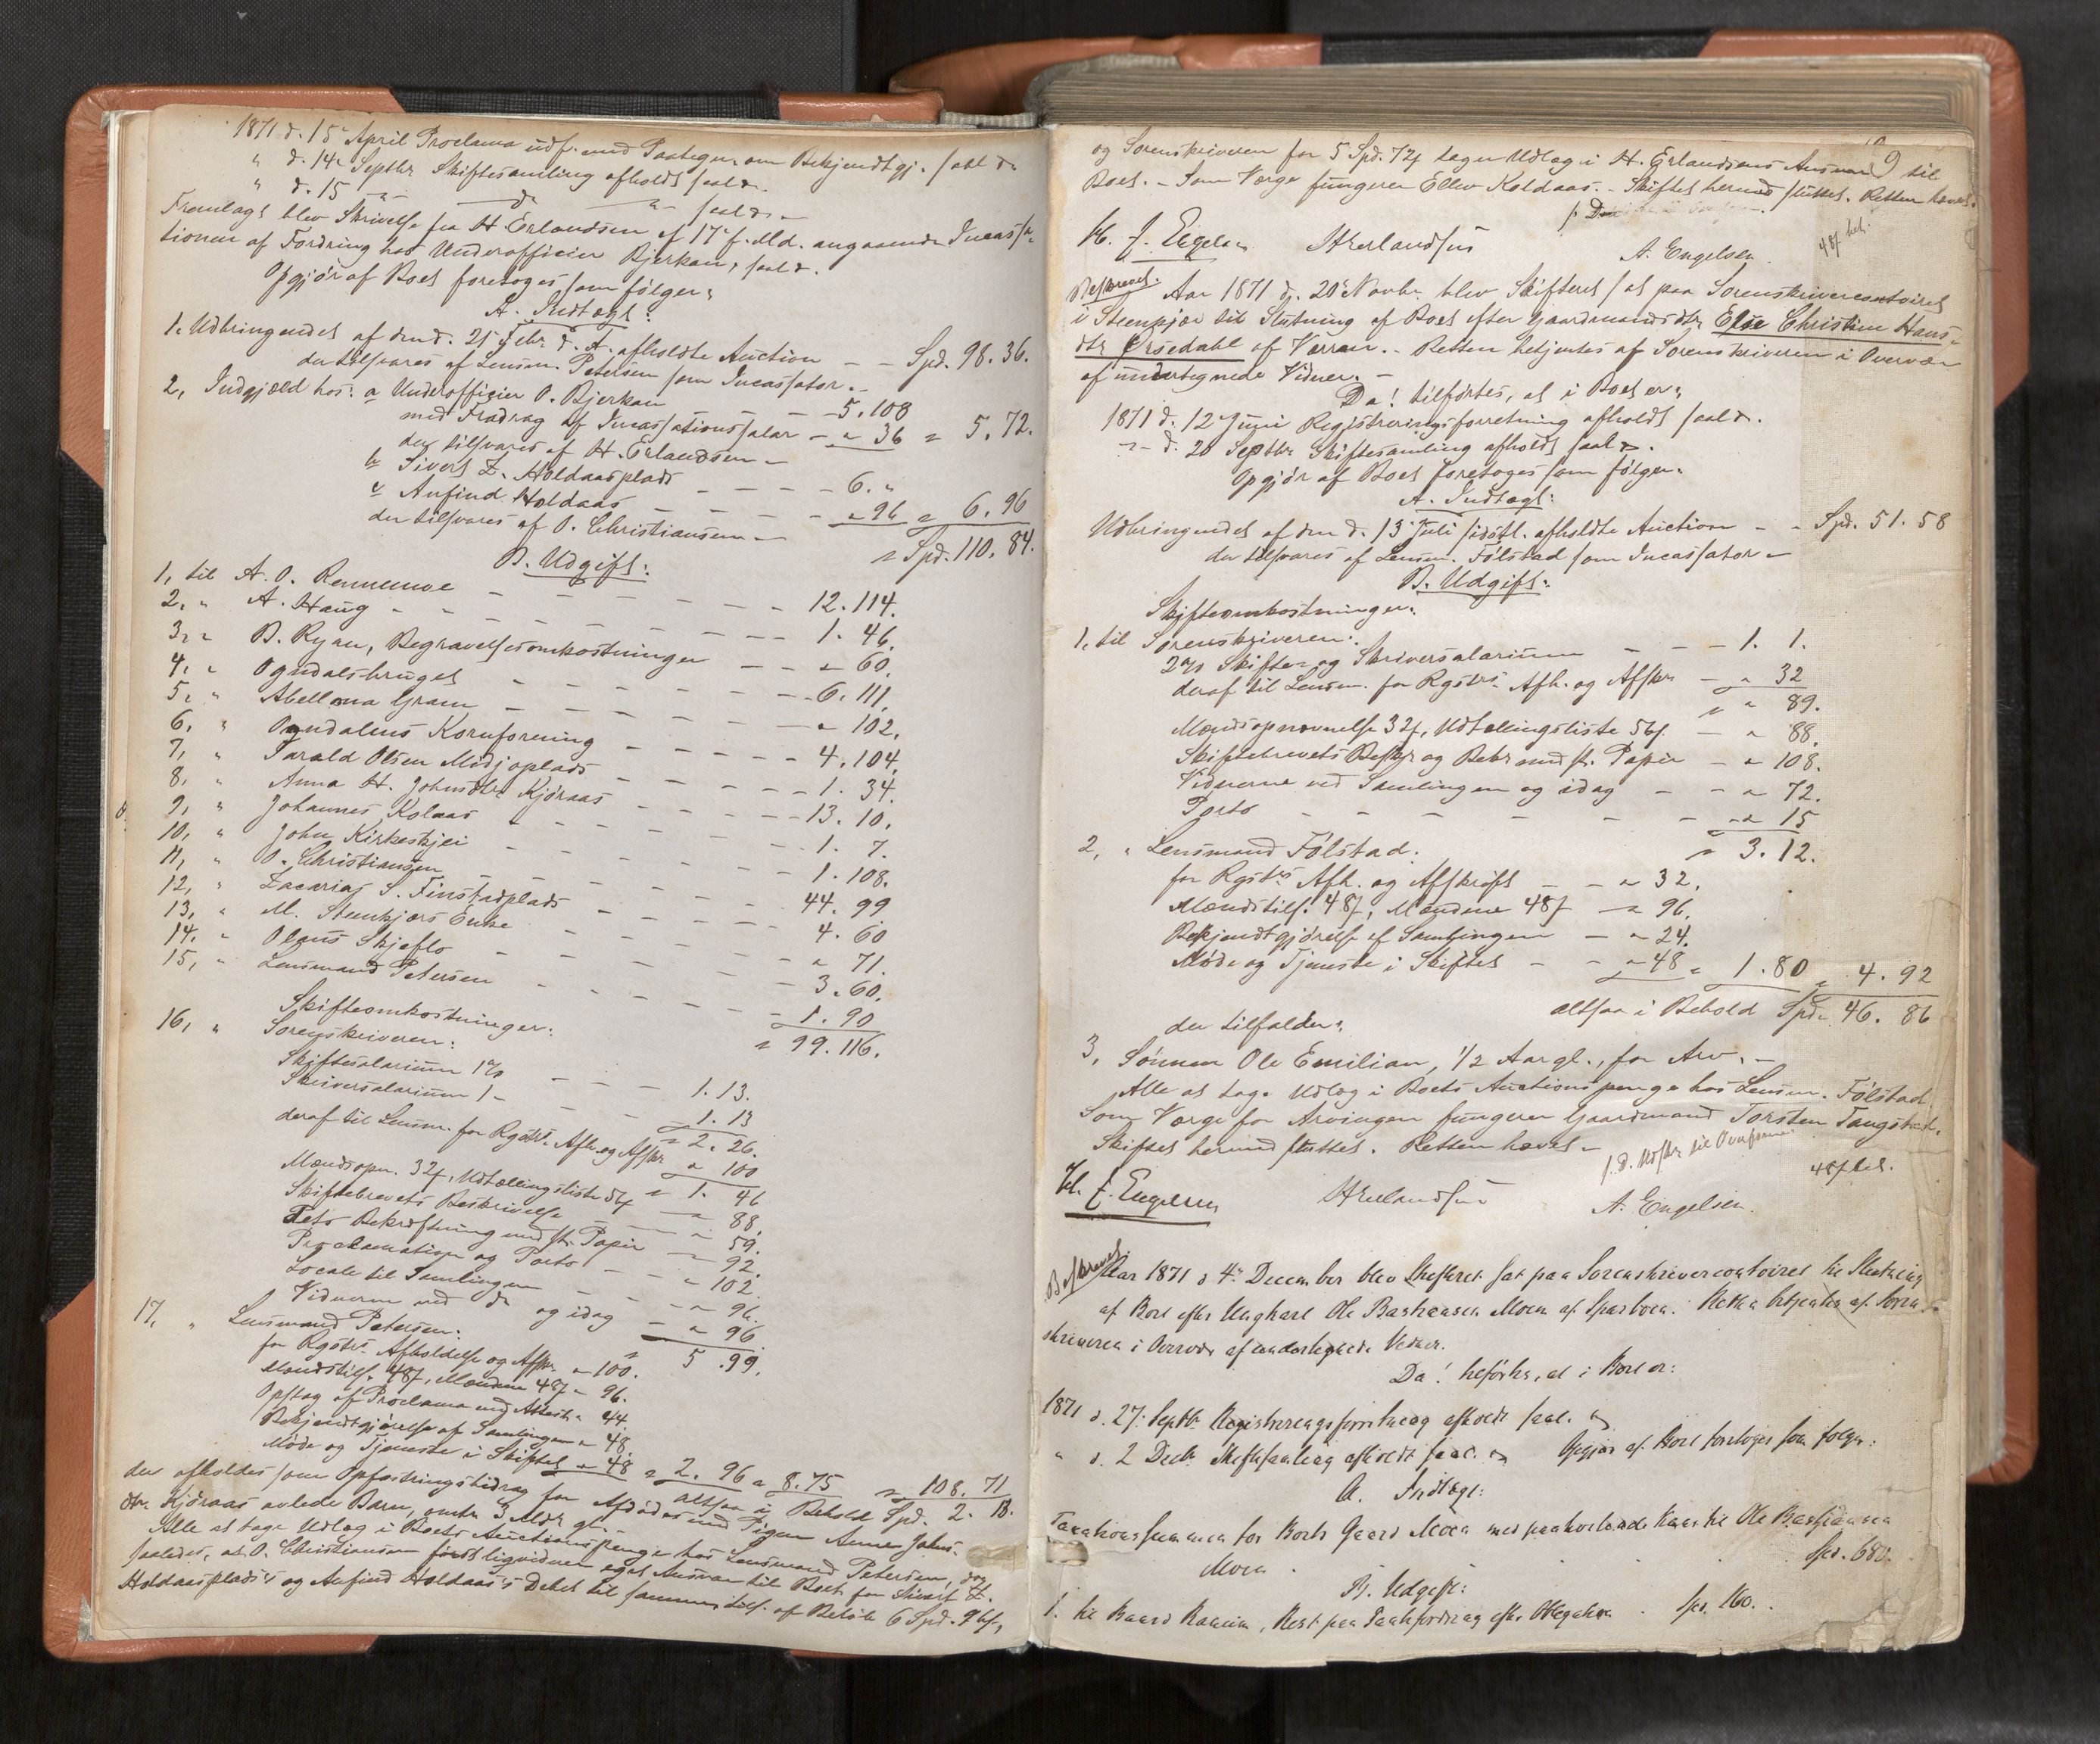 1871 d. 15de April Proclama udf. med Paategn. om Bekjendtgj. saal.
" d. 14de Septbr Skiftesamling afholdt saal.
" d. 15 saal.
Fremlagt blev Skrivelse fra H Erlandsen af 17de f. Md. angaaende Incassa-
tionen af Fordring hos Underofficier Bjerkan, saal.
Opgjør af Boet foretoges som følger:
A. Indtægt:
1. Udbringendet af den d. 25 Febr d. A. afholdte Auction — — Spd. 98. 36.
der tilsvares af Lensm. Petersen som Incassator. —
2, Indgjæld hos: a Underofficier O. Bjerkan — — — 5. 108
med Fradrag af Incassationssalær — " 36 = 5. 72.
der tilsvares af H. Erlandsen —
b Sivert Z. Holdaasplads — — — — 6. "
c Anfind Holdaas — — — — " 96 = 6. 96
der tilsvares af O. Christiansen — = Spd. 110. 84.
B. Udgift:
1, til A. O. Rennemoe — — — — — 12. 114.
2, " A. Haug — — — — — 1. 46.
3, " B. Ryan, Begravelsesomkostninger — — " 60.
4. " Ogndalsbruget — — — — — 6. 111.
5. " Abellona Gram — — — — — " 102.
6. " Ogndalens Kornforening — — — — 4. 104.
7, " Tarald Olsen Midjoplads — — — — 1. 34.
8. " Anna H. Johnsdtr Kjøraas — — — — 13. 10.
9, " Johannes Kolaas — — — — — 1. 7.
10, " John Kirkeskjei — — — — — 1. 108.
11, " O. Christiansen — — — — — 44. 99
12, " Zacarias S. Finstadplads — — — — 4. 60
13, " M. Steinkjærs Enke — — — — " 71.
14. " Olaus Skjeflo — — — — — 3. 60.
15, " Lensmand Petersen — — — — 1. 90
= 99. 116.
Skifteomkostninger:
16, " Sorenskriveren:
Skiftesalarium 1% — — — 1. 13.
Skriversalarium 1 — — — 1. 13
= 2. 26.
deraf til Lensm. for Rgstrs Afh. og Afskr " 100
= 1. 46
Mændsopn. 32ß, Udtællingsliste 56ß — " 88.
Skiftebrevets Beskrivelse — — " 59.
Dets Bekræftning med st. Papir — " 92.
Proclamation og Porto — — " 102.
Locale til Samlingen — — — " 96.
Vidnerne ved do og idag — " 96
= 5. 99.
17, " Lensmand Petersen:
for Rgstrs Afholdelse og Afskr. " 100.
Mændstils. 48ß, Mændene 48ß " 96.
Opslag af Proclama med Attest " 44.
Bekjendtgjørelse af Samlingen " 48.
Møde og Tjeneste i Skiftet " 48 = 2. 96 = 8. 75 = 108. 71
altsaa i Behold Spd. 2. 13.
der afholdes som Opfostringsbidrag for Afdødes med Pigen Anne Johns-
dtr. Kjøraas avlede Barn, omtr. 3 Mdr gl. —
Alle at tage Udlæg i Boets Auctionspenge hos Lensmand Petersen, dog
saaledes, at O. Christiansen først ligviderer eget Ansvar til Boet for Sivert Z.
Holdaasplads's og Anfind Holdaas's Debet til sammen tils. af Beløb 6 Spd. 96ß,
9
og Sorenskriveren for 5 Spd. 72ß tager Udlæg i H. Erlandsens Ansvar til
Boet. — Som Værge fungerer Ellev Koldaas. — Skiftet hermed sluttet. Retten hævet.
48ß bet.
Chr. J. Engelsen HErlandsen A. Engelsen.
Beskrevet. Aar 1871 d. 20de Novbr. blev Skifteret sat paa Sorenskrivercontoiret
i Steenkjær til Slutning af Boet efter Gaardmandsdtr Else Christine Hans-
dtr Ørsedahl af Værran. — Retten betjentes af Sorenskriveren i Overvær
af undertegnede Vidner. —
Da! tilførtes, at i Boet er:
1871 d. 12 Juni Registreringsforretning afholdt saal.
— d. 20 Septbr Skiftesamling afholdt saal.
Opgjør af Boet foretoges som følger:
A. Indtægt:
Udbringendet af den d. 13de Juli sidstl. afholdte Auction — — Spd. 51. 58
der tilsvares af Lensm. Følstad som Incassator —
B. Udgift:
Skifteomkostninger:
1, til Sorenskriveren:
2% Skifte- og Skriversalarium — — — 1. 1.
deraf til Lensm. for Rgstrs Afh. og Afskr — " 32
= " 89.
Mændsopnævnelse 32ß, Udtællingsliste 56ß. — " 88.
Skiftebrevets Beskr og Bekr med st. Papir — " 108.
Vidnerne ved Samlingen og idag — — " 72.
Porto — — — — — — " 15
= 3. 12.
2, " Lensmand Følstad:
for Rgstrs Afh. og Afskrift — — " 32.
Mændstils. 48ß, Mændene 48ß — " 96.
Bekjendtgjørelse af Samlingen — " 24.
Møde og Tjeneste i Skiftet — — " 48 = 1. 80 = 4. 92
altsaa i Behold Spd. 46. 86
der tilfalder:
3, Sønnen Ole Emilian, 1/2 Aar gl., for Arv. —
Alle at tage Udlæg i Boets Auctionspenge hos Lensm. Følstad
Som Værge for Arvingen fungerer Gaardmand Torsten Tangstad.
Skiftet hermed sluttet. Retten hævet —
f. d. Udskr til Overform
48ß bet.
Chr. J. Engelsen HErlandsen A. Engelsen.
Beskrevet. Aar 1871 d 4de December blev Skifteret sat paa Sorenskrivercontoiret til Slutning
af Boet efter Ungkarl Ole Bastiansen Moen af Sparboen. Retten betjentes af Soren-
skriveren i Overvær af undertegnede Vidner.
Da! tilførtes, at i Boet er:
1871 d. 27. Septbr Registreringsforretning afholdt saal.
" d. 2 Decbr Skiftesamling afholdt saal. Opgjør af Boet foretoges som følger:
A. Indtægt:
Taxationssummen for Boets Gaard Moen med paahvilende Kaar til Ole Bastiansen
Moen Spd. 680.
B. Udgift:
1. til Baard Raanim, Rest paa Pantefordring efter Obligation Spd. 160.